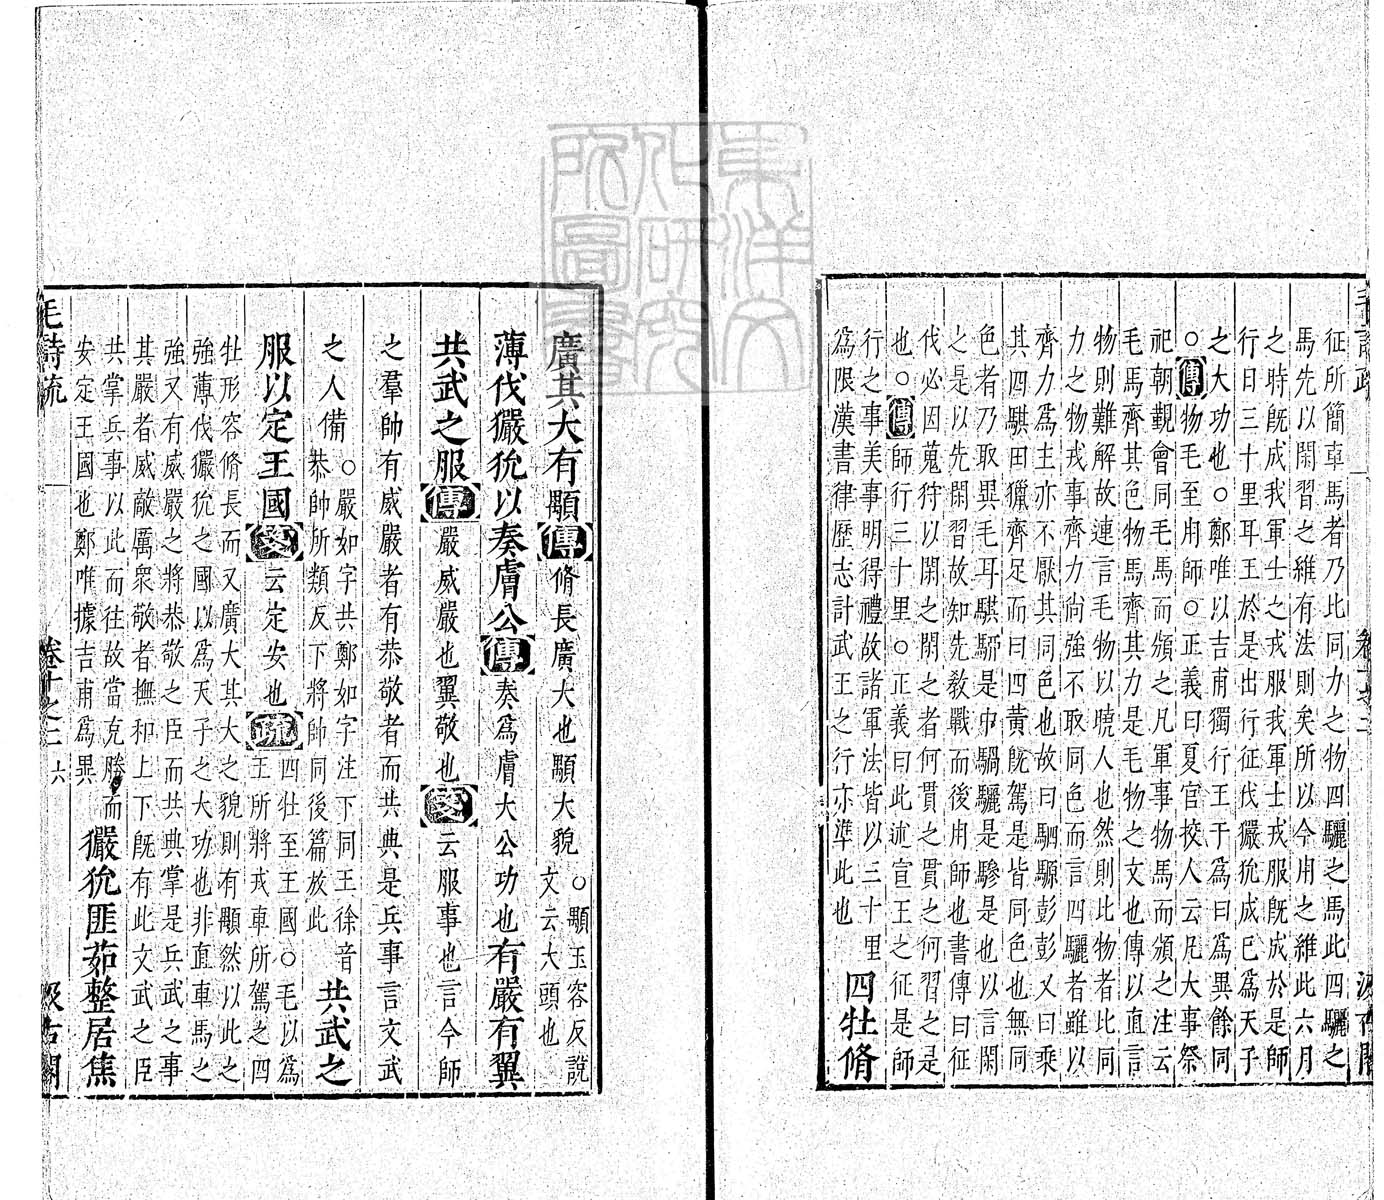 征所簡車馬者乃比同力之物四驪之馬此四驪之
馬先以閑習之維有法則矣所以今用之維此六月
之時旣成我軍士之戎服我軍士戎服旣成於是師
行日三十里耳王於是出行征伐玁狁成已爲天子
之大功也○鄭唯以吉甫獨行王于爲曰爲異餘同
○傳物毛至用師○正義曰夏官挍人云凡大事祭
祀朝覲會同毛馬而頒之凡軍事物馬而頒之注云
毛馬齊其色物馬齊其力是毛物之文也傳以直言
物則難解故連言毛物以曉人也然則此物者比同
力之物戎事齊力尚強不取同色而言四驪者雖以
齊力爲主亦不厭其同色也故曰駟騵彭彭又曰乘
其四騏田獵齊足而曰四黃旣駕是皆同色也無同
色者乃取異毛耳騏騮是中騧驪是驂是也以言閑
之是以先閑習故知先敎戰而後用師也書傳曰征
伐必因蒐狩以閑之閑之者何貫之貫之何習之是
也○傳師行三十里○正義曰此述宣王之征是師
行之事美事明得禮故諸軍法皆以三十里
爲限漢書律歷志計武王之行亦準此也 四牡脩
廣其大有顒傳脩長廣大也顒大貌○顒玉容反說
文云大頭也
薄伐玁狁以奏膚公傳奏爲膚大公功也有嚴有翼
共武之服傳嚴威嚴也翼敬也箋云服事也言今師
之羣帥有威嚴者有恭敬者而共典是兵事言文武
之人備○嚴如字共鄭如字注下同王徐音
恭帥所類反下將帥同後篇放此 共武之
服以定王國箋云定安也疏四牡至王國○毛以爲
王所將戎車所駕之四
牡形容脩長而又廣大其大之貌則有顒然以此之
強薄伐玁狁之國以爲天子之大功也非直車馬之
強又有威嚴之將恭敬之臣而共典掌是兵武之事
其嚴者威敵厲衆敬者撫和上下旣有此文武之臣
共掌兵事以此而往故當克勝而
安定王國也鄭唯據吉甫爲異 玁狁匪茹整居焦
毛詩疏 卷十之二 六 汲古閣